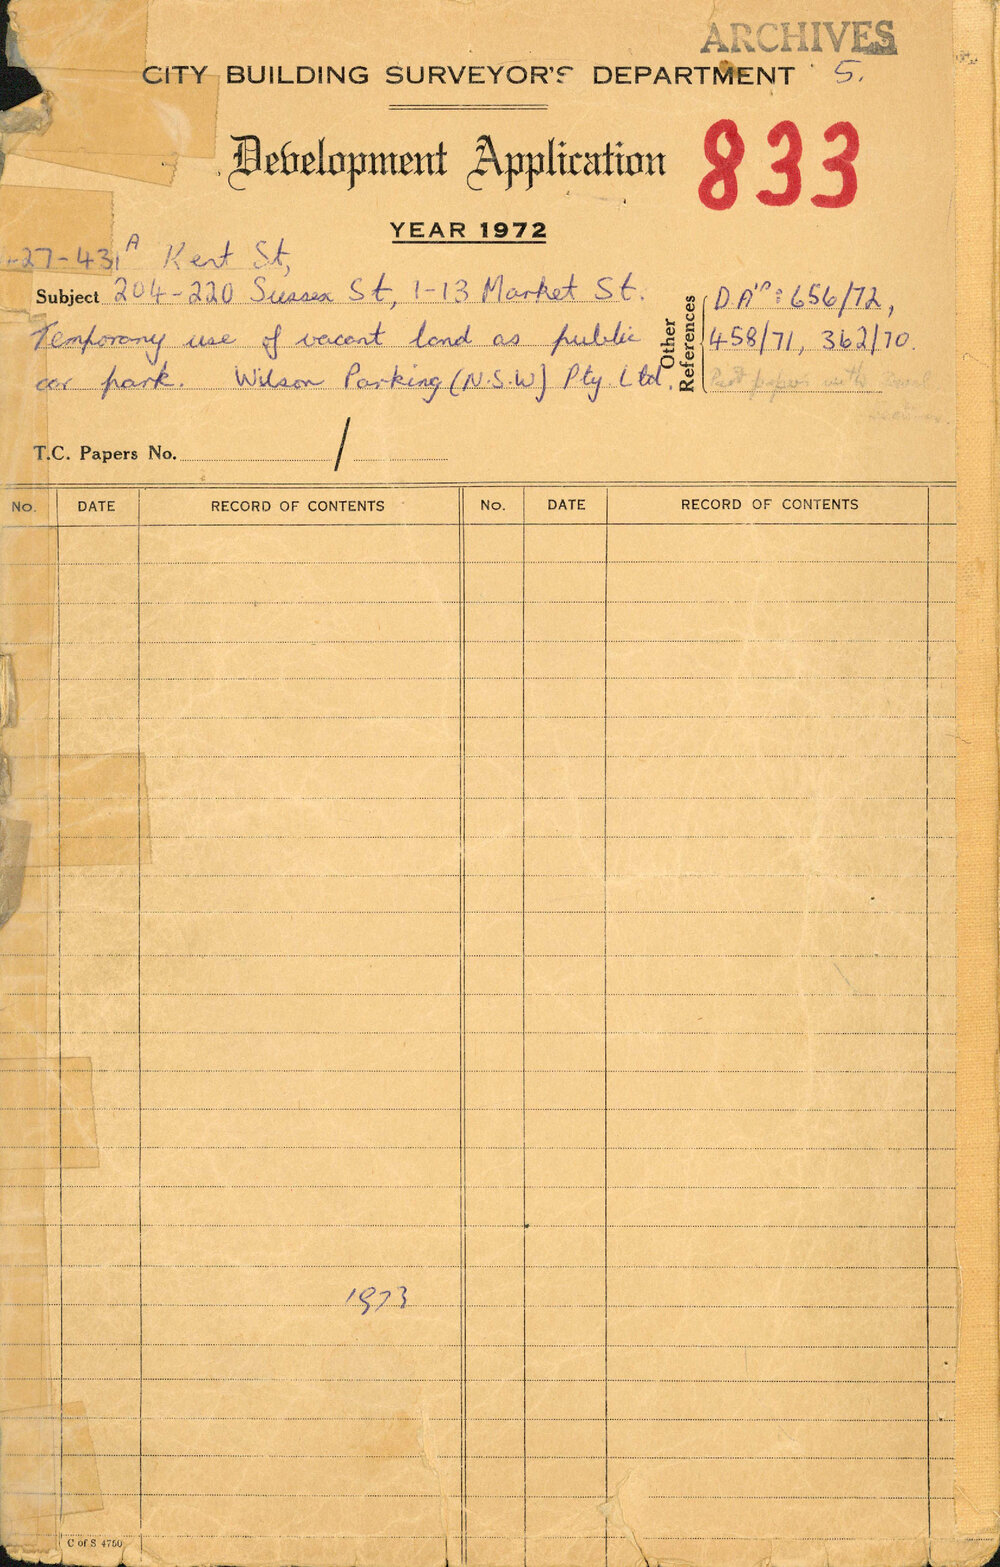 ARCHIVES
CITY BUILDING SURVEYOR'S DEPARTMENT 5.
Development Application 833
YEAR 1972
-27-431A Kent St,
Subject 204-220 Sussex St, 1-13 Market St.
Temporary use of vacant land as public
car park. Wilson Parking (N.S.W) Pty. Ltd.
Other References
D.A's: 656/72,
458/71, 362/70.
T.C. Papers No. /
No. DATE RECORD OF CONTENTS No. DATE RECORD OF CONTENTS
1973
C of S 4750